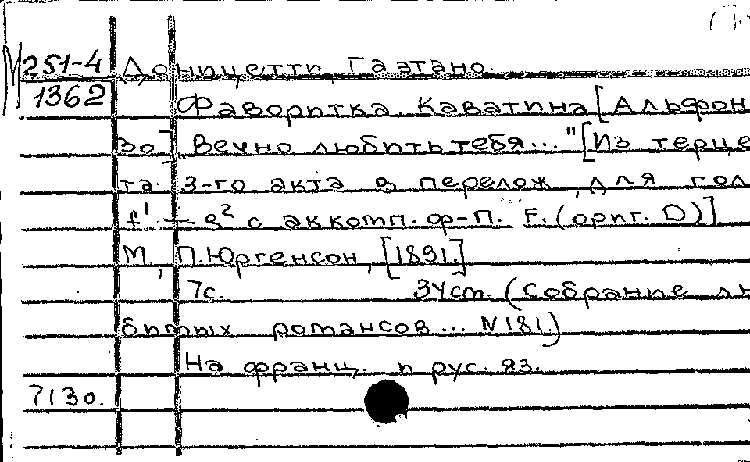 М 251-4 Доницетти, Гаэтано.
1362 Фаворитка. Каватина [Альфон
зо] „Вечно любить тебя..." [Из терце
та 3-го акта в перелож. для гол
f¹ – g² с аккомп. ф-п. F. (ориг. D)]
М., П. Юргенсон, [1891.]
7с. 34 ст. (Собрание лю
битых романсов... N 181.)
На франц. и рус. яз.
7130.